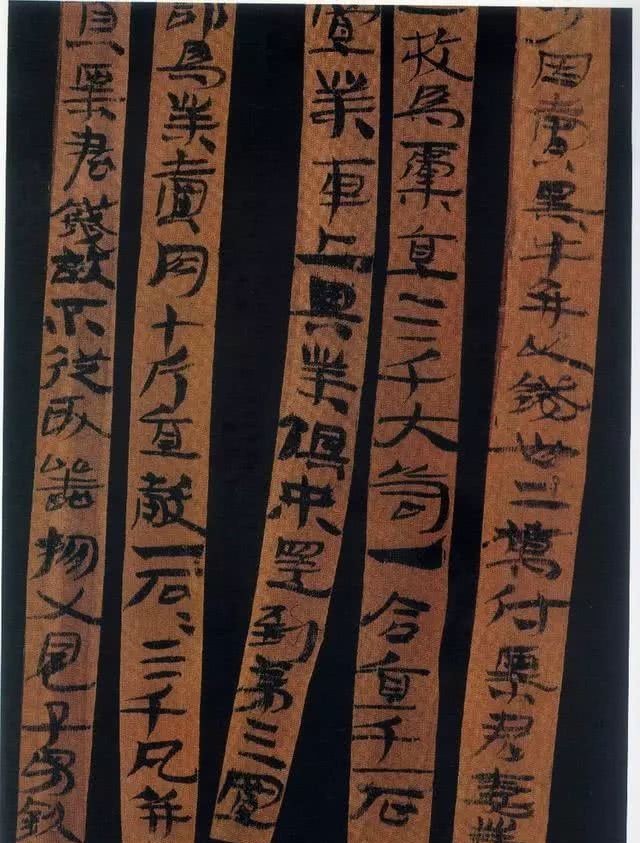 少因賣黑牛并以錢卅二萬付粟君妻業
一枚為橐直三千大笥一合直千一石
置業車上與業俱來還到第三置
部為業賣肉十斤直穀一石〻三千凡并
負粟君錢故不從取器物又恩子男欽